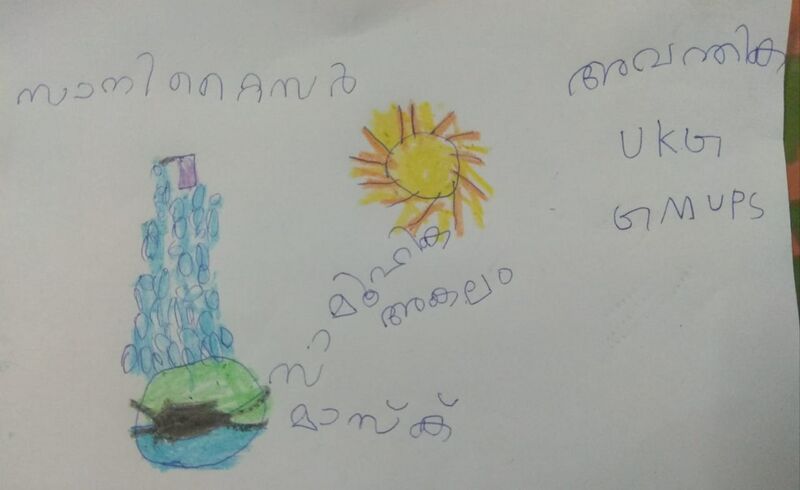 സാനിറ്റൈസർ
അവന്തിക
UKG
GMUPS
സാ
മൂഹിക
അകലം
മാസ്ക്